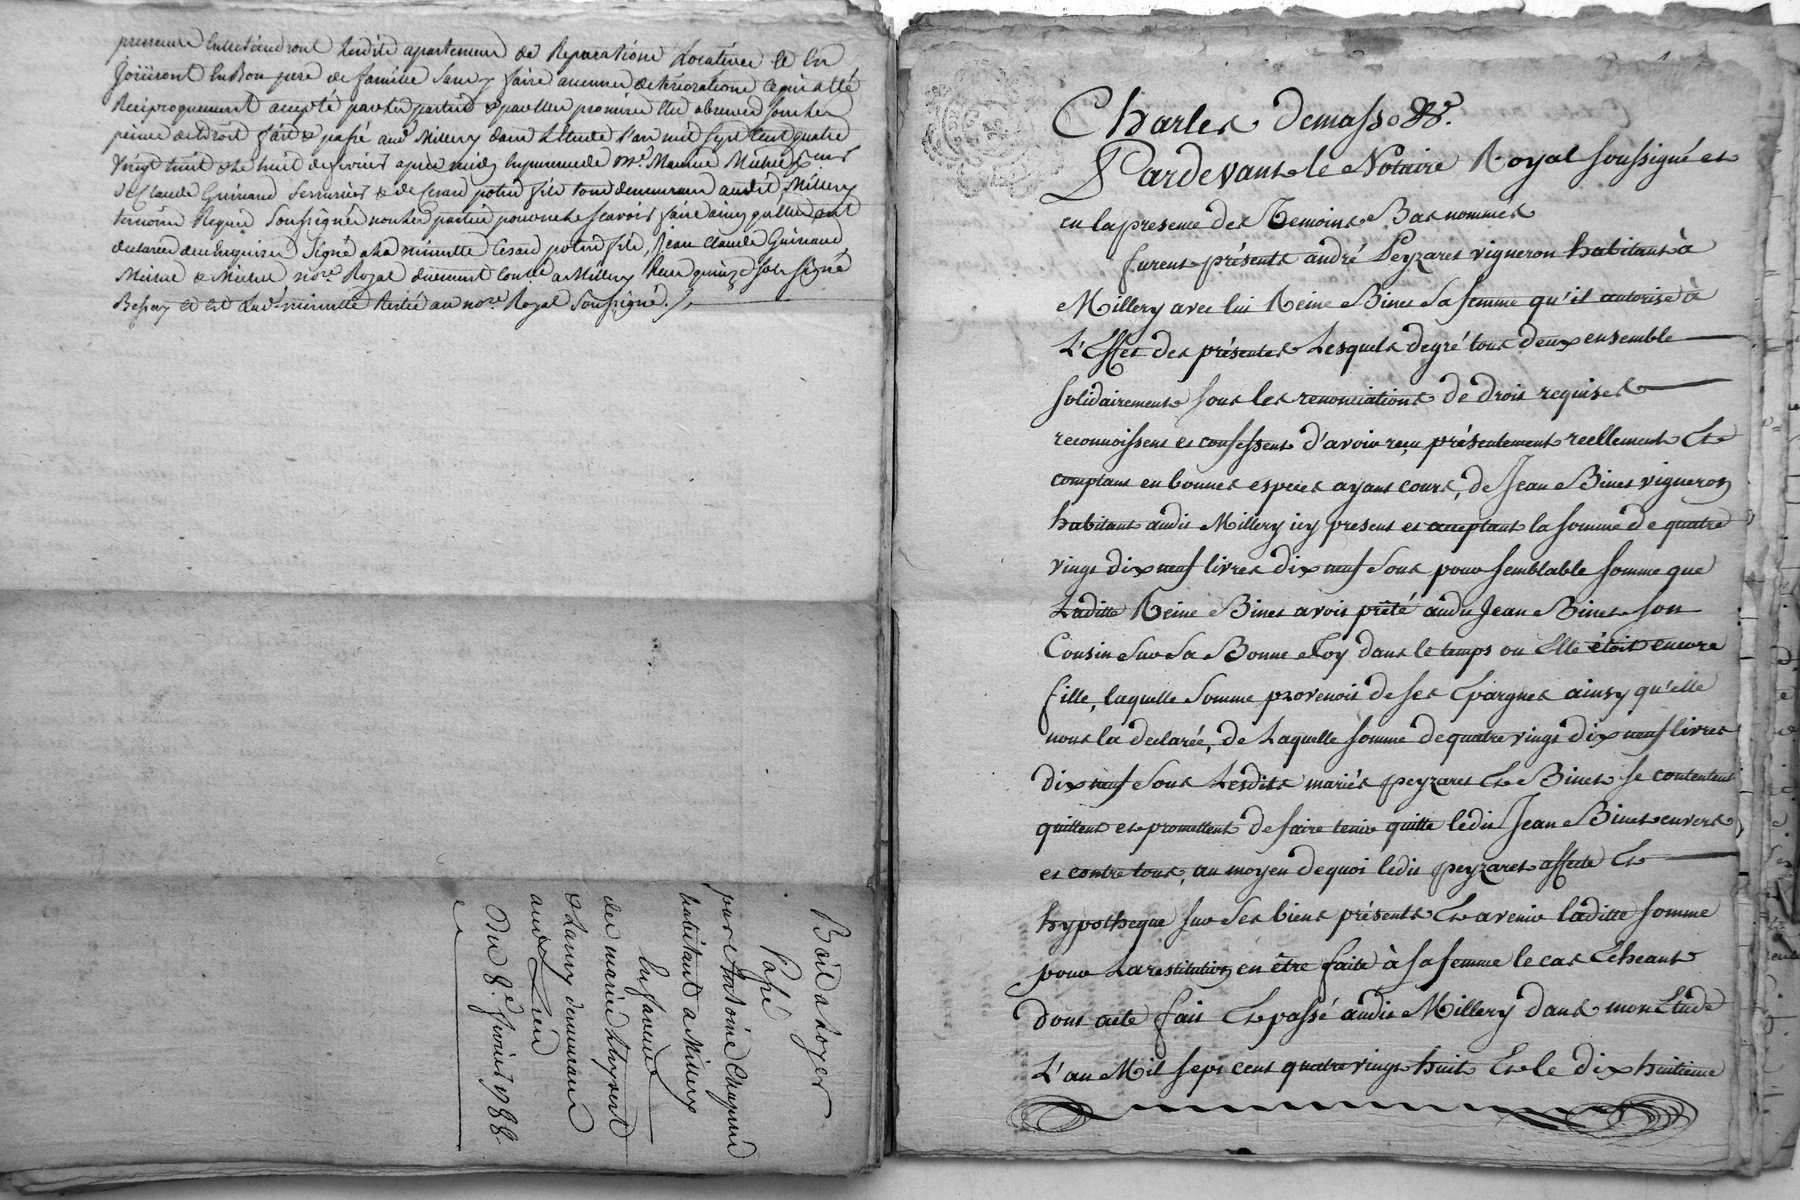 preneurs Entretiendront lesdits apartement de Reparations Locatives et En
Joüiront En Bon pere de famille Sans y faire aucunes deteriorations ce qui a été
Reciproquement accepté par les parties & par Elles promis Etre observé sous les
peines de droit fait & passé aud. Millery dans L'Etude L'an mil sept Cent quatre
vingt huit & le huit de fevrier après midy En presence de
de Claude Guinand Serrurier & de Cesard poten fils tous demeurant audit Millery
temoins Requis Soussignés non les parties pour ne le scavoir faire ainsy qu'elles ont
declaré de ce Enquises Signé a la minutte Cesard poten fils, Jean Claude Guinand,
no.re Royal duement Con.lé a Millery Reçu quinze sols signé
et est Lad. minutte Restée au no.re Royal Soussigné./.
Bail a Loyer
Passé
par Antoine
habitant a Millery
En faveur
des mariés
& Lanoy demeurant
aud. Lieu
Du 8.e fevrier 1788.
Charles demasso &c.
Pardevant le Notaire Royal soussigné et
en la presence des Temoins Bas nommés
furent présents andré Peyzaret vigneron habitant à
Millery avec lui Reine Binet Sa femme qu'il autorise à
L'Effet des présentes Lesquels de gré tous deux ensemble
solidairement sous les renonciations de droit requises
reconnoissent et confessent d'avoir reçu présentement reellement Et
comptant en bonnes especes ayant cours, de Jean Binet vigneron
habitant audit Millery icy present et acceptant la somme de quatre
vingt dix neuf livres dix neuf Sous pour semblable somme que
Laditte Reine Binet avoit prêté audit Jean Binet son
Cousin Sur Sa Bonne Foy dans le temps ou Elle étoit encore
fille, laquelle Somme provenoit de ses Epargnes ainsy qu'elle
nous la declarée, de Laquelle somme de quatre vingt dix neuf livres
dix neuf Sous Lesdits mariés peyzaret Et Binet se contentent
quittent et promettent de faire tenir quitte ledit Jean Binet envers
et contre tous, au moyen de quoi ledit peyzaret affecte Et
hypotheque sur Ses biens présents Et avenir laditte somme
pour La restitution en être faite à sa femme le cas Echeant
dont acte fait Et passé audit Millery dans mon Etude
L'an Mil sept cent quatre vingt huit Et le dix huitieme